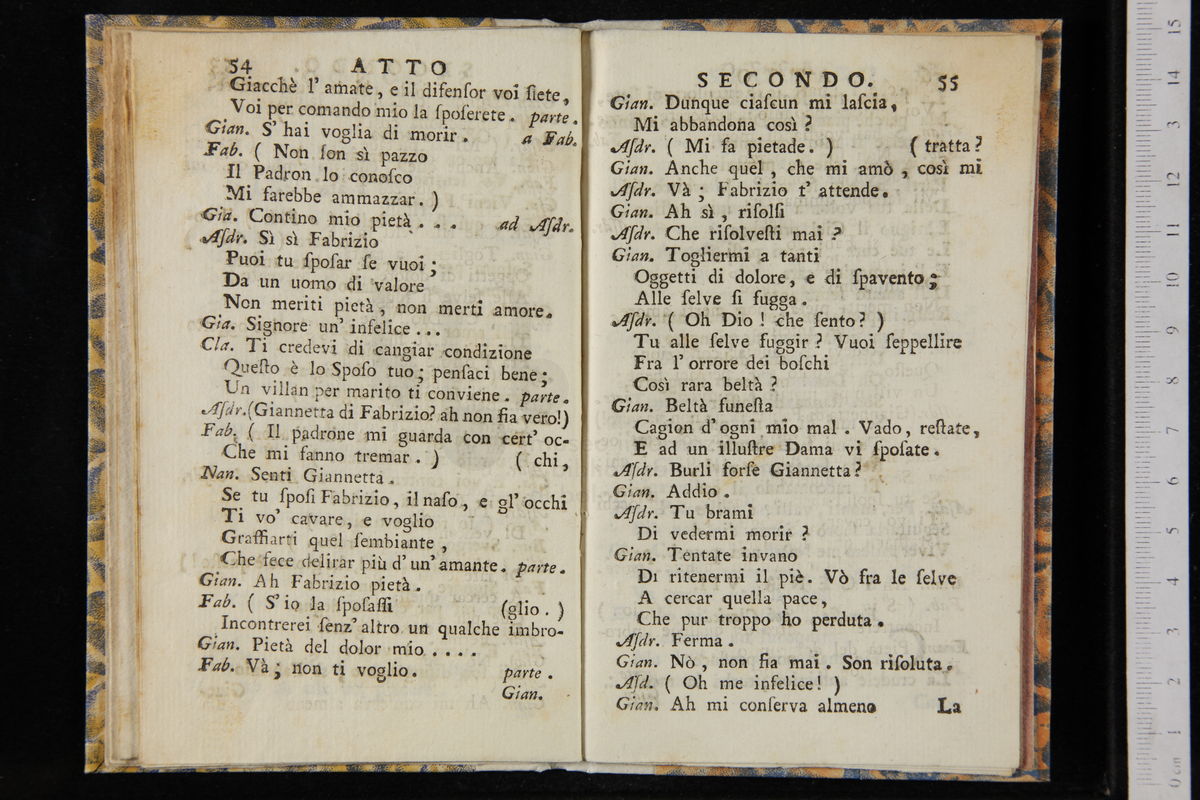 54 ATTO
Giacchè l' amate, e il difensor voi siete,
Voi per comando mio la sposerete. parte.
Gian. S' hai voglia di morir. a Fab.
Fab. ( Non son sì pazzo
Il Padron lo conosco
Mi farebbe ammazzar. )
Gia. Contino mio pietà . . . ad Asdr.
Asdr. Sì sì Fabrizio
Puoi tu sposar se vuoi;
Da un uomo di valore
Non meriti pietà, non merti amore.
Gia. Signore un' infelice ...
Cla. Ti credevi di cangiar condizione
Questo è lo Sposo tuo; pensaci bene;
Un villan per marito ti conviene. parte.
Asdr. (Giannetta di Fabrizio? ah non fia vero!)
Fab. ( Il padrone mi guarda con cert' oc-
Che mi fanno tremar. ) ( chi,
Nan. Senti Giannetta.
Se tu sposi Fabrizio, il naso, e gl' occhi
Ti vo' cavare, e voglio
Graffiarti quel sembiante,
Che fece delirar più d' un' amante. parte.
Gian. Ah Fabrizio pietà.
Fab. ( S' io la sposassi (glio. )
Incontrerei senz' altro un qualche imbro-
Gian. Pietà del dolor mio ....
Fab. Và; non ti voglio. parte.
Gian.
SECONDO. 55
Gian. Dunque ciascun mi lascia,
Mi abbandona così?
Asdr. ( Mi fa pietade. ) ( tratta?
Gian. Anche quel, che mi amò, così mi
Asdr. Và; Fabrizio t' attende.
Gian. Ah sì, risolsi
Asdr. Che risolvesti mai?
Gian. Togliermi a tanti
Oggetti di dolore, e di spavento;
Alle selve si fugga.
Asdr. ( Oh Dio! che sento? )
Tu alle selve fuggir? Vuoi seppellire
Fra l' orrore dei boschi
Così rara beltà?
Gian. Beltà funesta
Cagion d' ogni mio mal. Vado, restate,
E ad un illustre Dama vi sposate.
Asdr. Burli forse Giannetta?
Gian. Addio.
Asdr. Tu brami
Di vedermi morir?
Gian. Tentate invano
Di ritenermi il piè. Vò fra le selve
A cercar quella pace,
Che pur troppo ho perduta.
Asdr. Ferma.
Gian. Nò, non fia mai. Son risoluta.
Asd. ( Oh me infelice! )
Gian. Ah mi conserva almeno La
0 cm 1 2 3 4 5 6 7 8 9 10 11 12 13 14 15